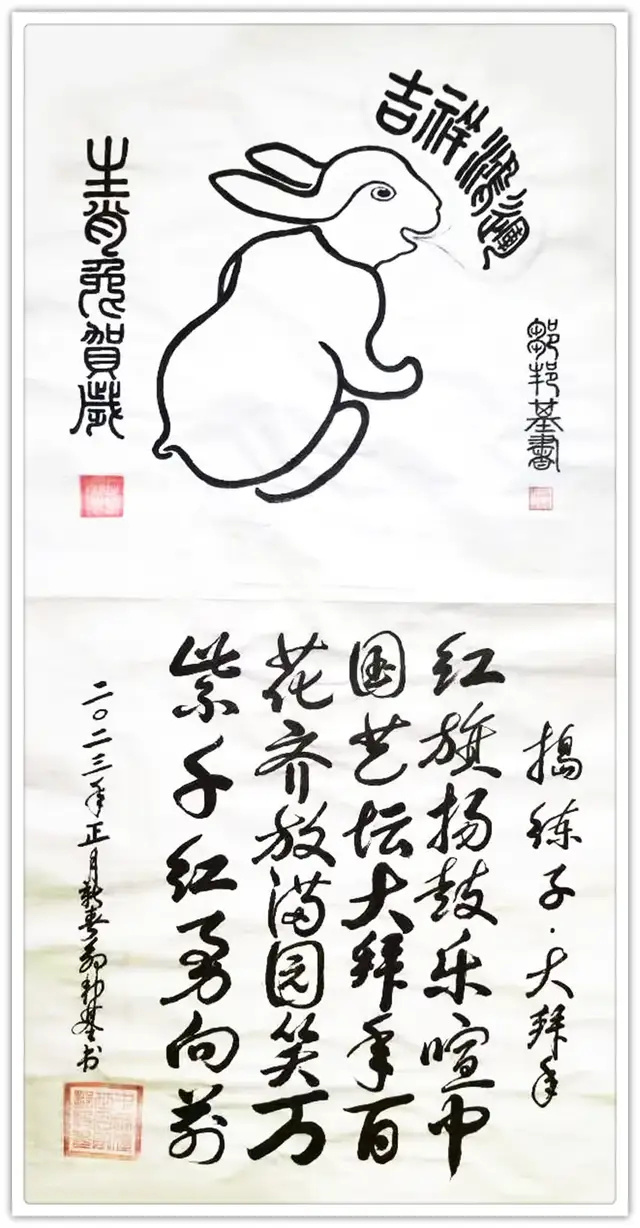 吉祥鴻運
鄒邦基書
生肖兔賀歲
搗练子·大拜年
红旗扬鼓乐喧中
国艺坛大拜年百
花齐放满园笑万
紫千红勇向前
二〇二三年正月新春邹邦基书